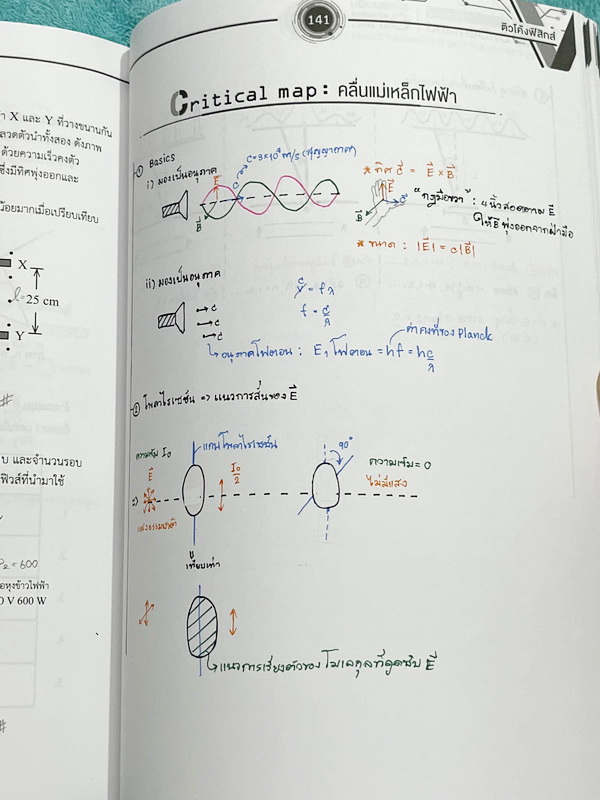 141
ติวโค้งฟิสิกส์
Critical map : คลื่นแม่เหล็กไฟฟ้า
① Basics
i) มองเป็นอนุภาค
C=3×10⁸ m/s (สุญญากาศ)
E
C
B
* ทิศ C = E × B
E
C
B
"กฎมือขวา" : 4 นิ้วสอดตาม E
ให้ B พุ่งออกจากฝ่ามือ
* ขนาด : |E| = c|B|
ii) มองเป็นอนุภาค
→ c
→ c
→ c
c
v = fλ
f = c/λ
ค่าคงที่ของ Planck
↳ อนุภาคโฟตอน : E, โฟตอน = hf = hc/λ
② โพลาไรเซชัน => แนวการสั่นของ E
ความเข้ม I₀
แกนโพลาไรเซชัน
E
I₀/2
90°
ความเข้ม = 0
ไม่มีแสง
แสงธรรมชาติ
เทียบเท่า
↳ แนวการเรียงตัวของโมเลกุลที่ดูดซับ E
X และ Y ที่วางขนานกัน
ลวดตัวนำทั้งสอง ดังภาพ
ด้วยความเร็วคงตัว
ซึ่งมีทิศพุ่งออกและ
น้อยมากเมื่อเปรียบเทียบ
X
l=25 cm
Y
#
บ และจำนวนรอบ
ฟิวส์ที่นำมาใช้
P₂ = 600
อหุงข้าวไฟฟ้า
0 V 600 W
#